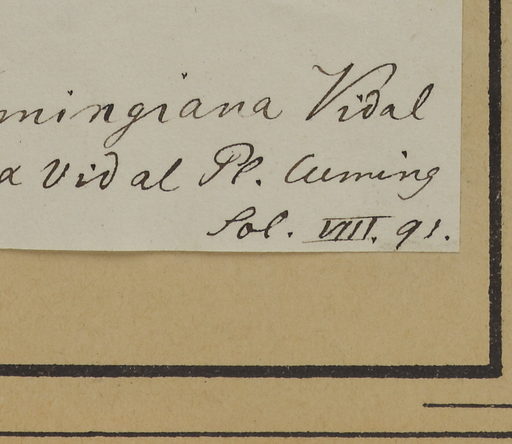 mingiana Vidal
a Vidal Pl. Cuming
Sol. VIII. 91.